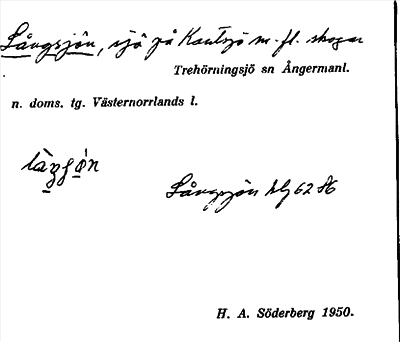 Långsjön, sjö på Kantsjö m. fl. skogar
Trehörningsjö sn Ångermanl.
n. doms. tg. Västernorrlands l.
Långsjön blg 62 Af
H. A. Söderberg 1950.